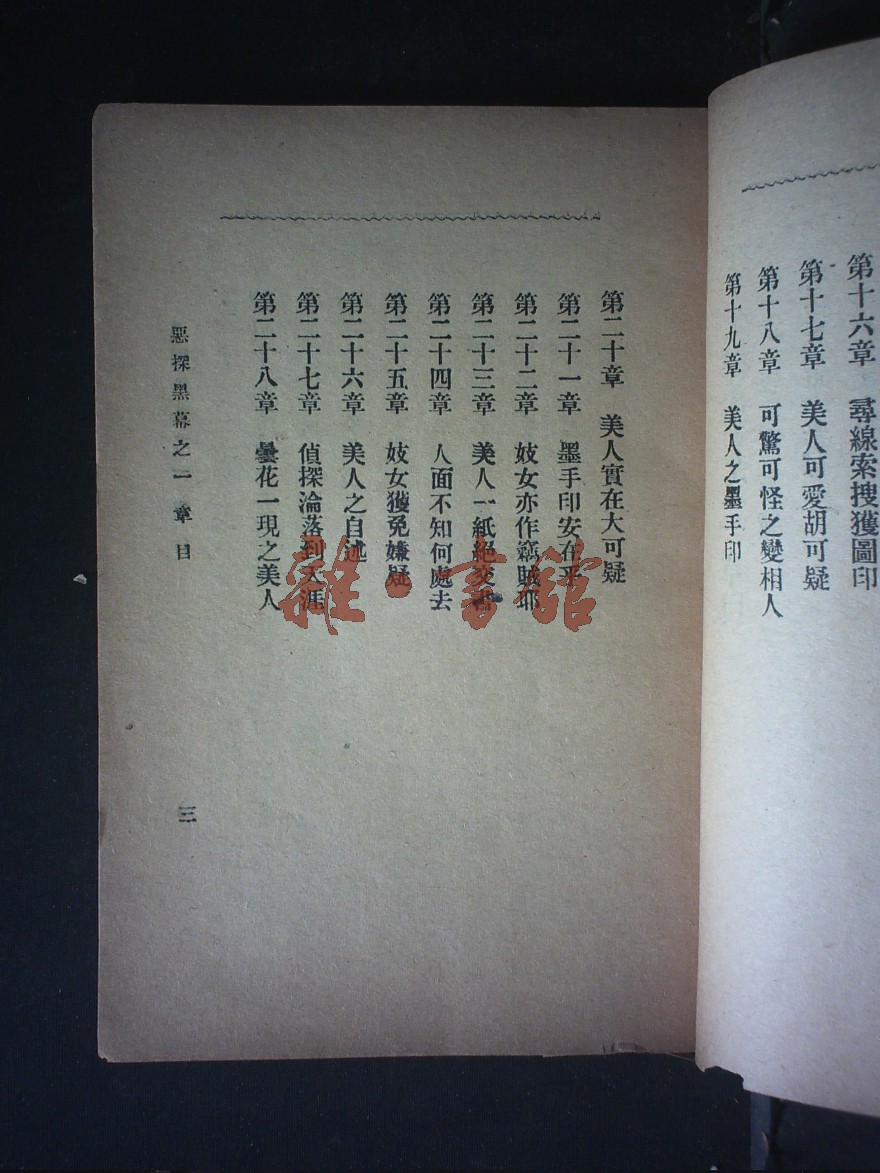 第十六章　尋線索搜獲圖印
第十七章　美人可愛胡可疑
第十八章　可驚可怪之變相人
第十九章　美人之墨手印
第二十章　美人實在大可疑
第二十一章　墨手印安在乎
第二十二章　妓女亦作竊賊耶
第二十三章　美人一紙絕交書
第二十四章　人面不知何處去
第二十五章　妓女獲免嫌疑
第二十六章　美人之自述
第二十七章　偵探淪落到天涯
第二十八章　曇花一現之美人
惡探黑幕之一章目
三
雜·書館